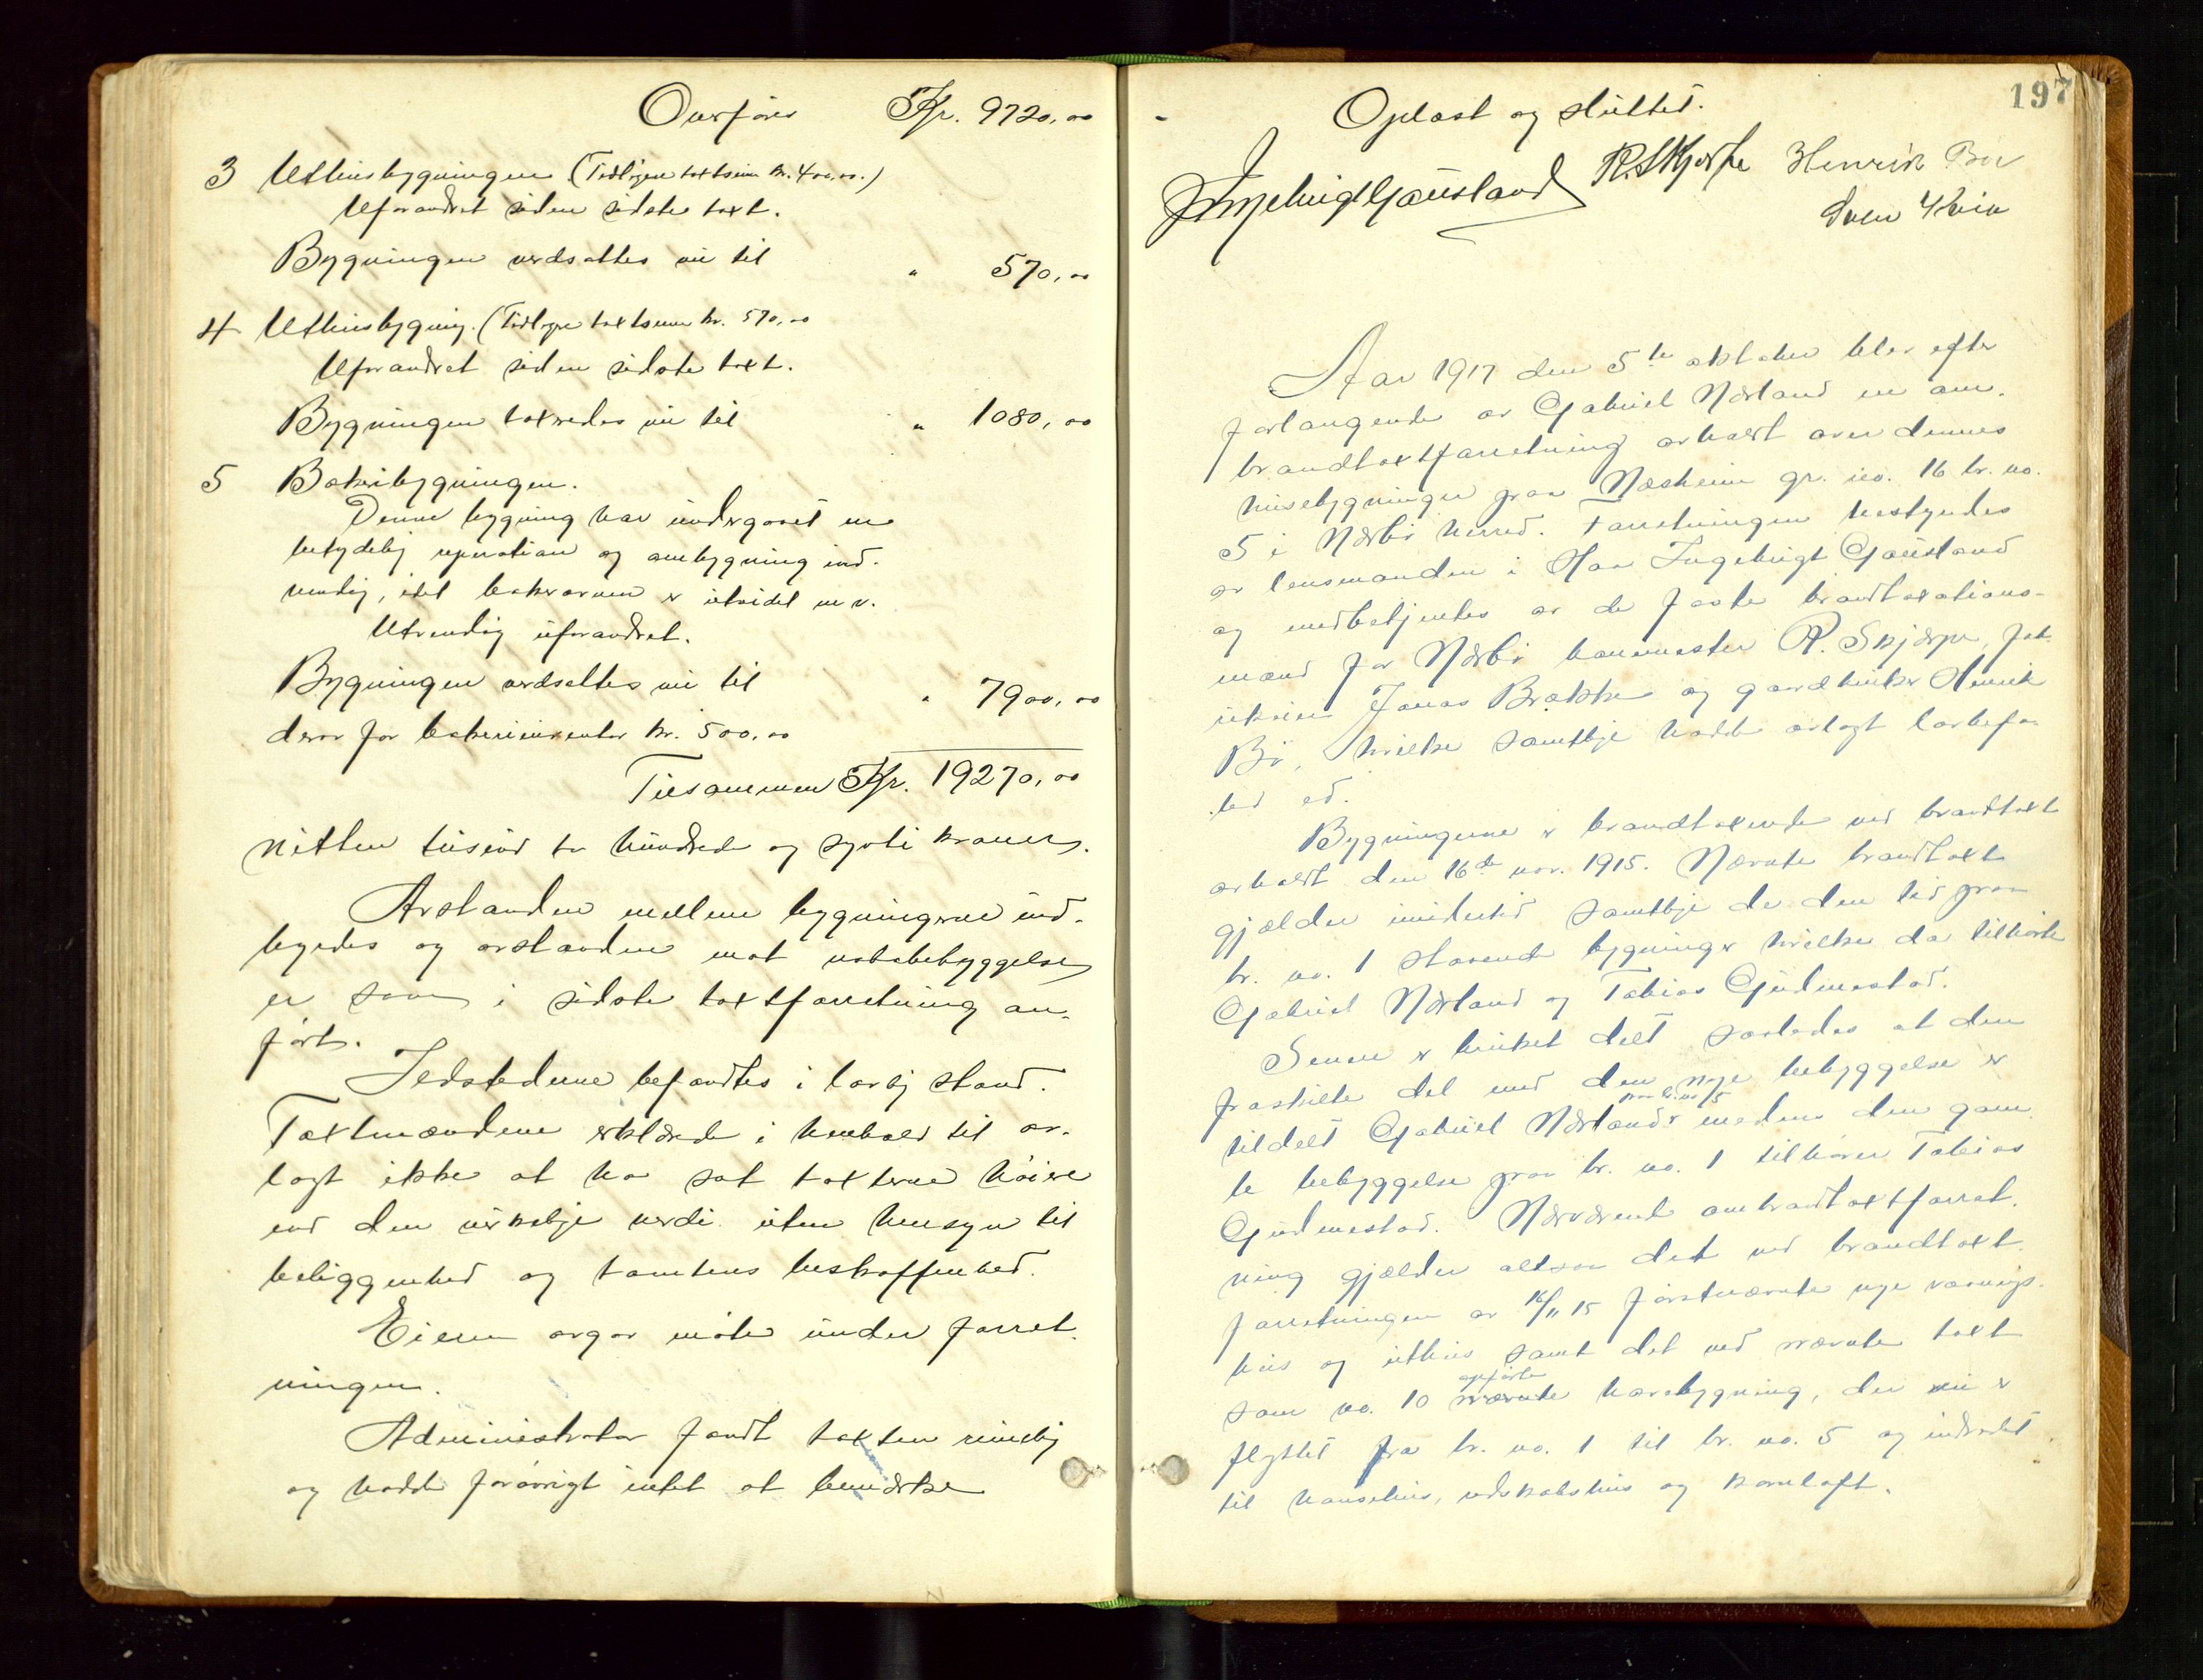 Overføres Kr. 9720,00
3 Uthusbygningen (Tidligere takstsum kr. 400,00.)
Uforandret siden sidste takt.
Bygningen verdsattes nu til " 570,00
4 Uthusbygning. (Tidligere takstsum kr. 570,00
Uforandret siden sidste taxt.
Bygningen taxredes nu til " 1080,00
5 Bakeribygningen.
Denne bygning har undergaaet en
betydelig reperation og ombygning ind-
vendig, idet bakerovnen er utvidet m. v.
Utvendig uforandret.
Bygningen verdsattes nu til " 7900,00
derav for bakeriinventar kr. 500,00
Tilsammen Kr. 19270,00
nitten tusind to hundrede og sytti kroner.
Avstanden mellem bygningerne ind-
byrdes og avstanden mot nabobebyggelse
er som i sidste taxtforretning an-
ført.
Ildstederne befandtes i lovlig stand.
Taxtmændene erklærede i henhold til av-
lagt ikke at ha sat taxterne høiere
end den virkelige verdi uten hensyn til
beliggenhed og tomtens beskaffenhed.
Eieren avgav møte under forret-
ningen.
Administrator fandt taxten rimelig
og hadde forøvrigt intet at bemærke
197
Oplæst og sluttet.
Ingebrigt Gausland R. Skjærpe Henrik Bø
Sven
Aar 1917 den 5te oktober blev efter
forlangende av Gabriel Nærland en om-
brandtaxtforretning avholdt over dennes
husebygninger paa Næsheim gr. no. 16 br. no.
5 i Nærbø herred. Forretningen bestyredes
av lensmanden i Haa Ingebrigt Gausland
og medbetjentes av de faste brandtaxations-
mænd for Nærbø kanemester R. Skjærpe, fab-
rikeier Jonas Brække og gaardbruker Henrik
Bø, hvilke samtlige hadde avlagt lovbefa-
led ed.
Bygningerne er brandtaxerede ved brandtaxt
avholdt den 16de nov. 1915. Nævnte brandtaxt
gjælder imidlertid samtlige de den tid paa
br. no. 1 staaende bygninger hvilke da tilhørte
Gabriel Nærland og Tobias Gudmestad.
Senere er bruket delt saaledes at den
fraskilte del med den nye bebyggelse er
tildelt Gabriel Nærland paa br. no 5 medens den gam-
le bebyggelse paa br. no. 1 tilhører Tobias
Gudmestad. Nærværende ombrandtaxtforret-
ning gjælder altsaa det ved brandtaxt-
forretningen av 16/11 15 førstnævnte nye vaanings-
hus og uthus samt det ved nævnte taxt
som no. 10 opførte havebygning, der nu er
flyttet fra br. no. 1 til br. no. 5 og indredet
til hønsehus, redskabshus og kornloft.